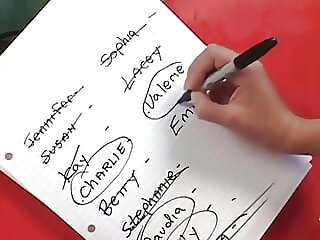 Jennifer -
SUSAN -
Kay
CHARLIE
BETTY -
Stephanie -
Claudia
Sophia -
LACEY
Valerie